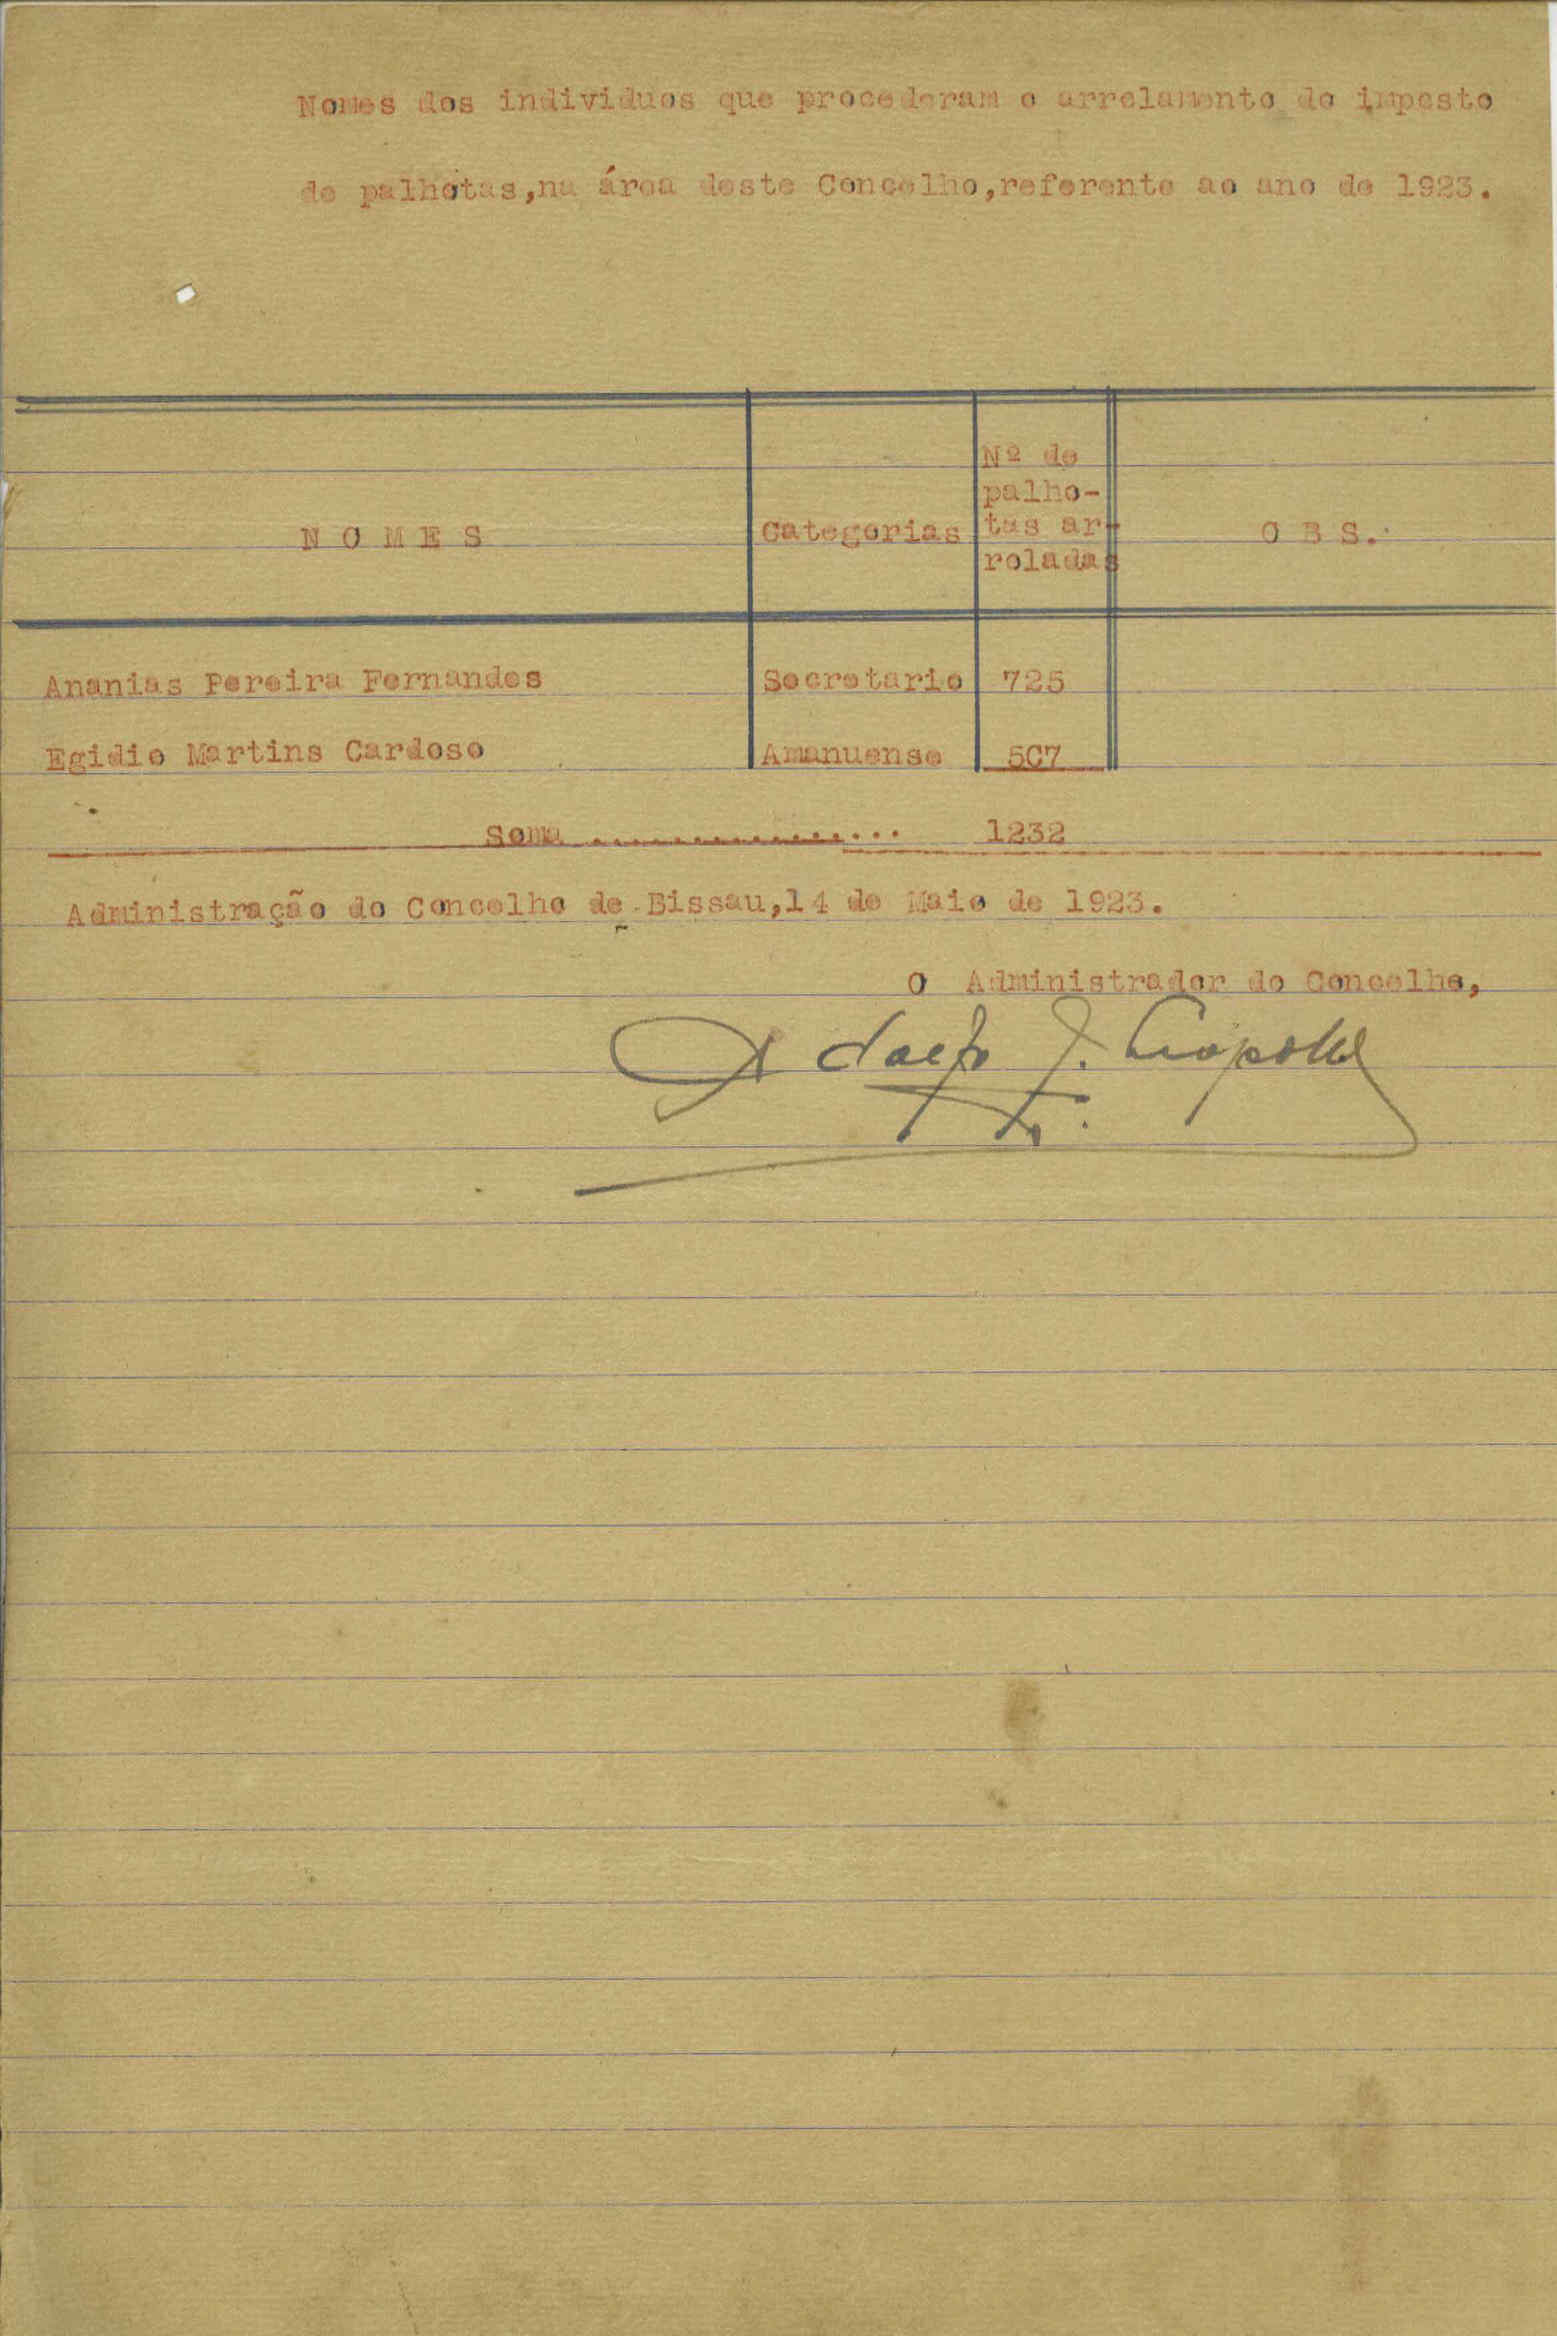 Nomes dos individuos que procederam o arrolamento do imposto
de palhotas,na área deste Concelho,referente ao ano de 1923.
N O M E S
Categorias
Nº de
palho-
tas ar-
roladas
O B S.
Ananias Pereira Fernandes Secretario 725
Egidio Martins Cardoso Amanuense 507
Soma ................... 1232
Administração do Concelho de Bissau,14 de Maio de 1923.
O Administrador do Concelho,
Adolfo J.